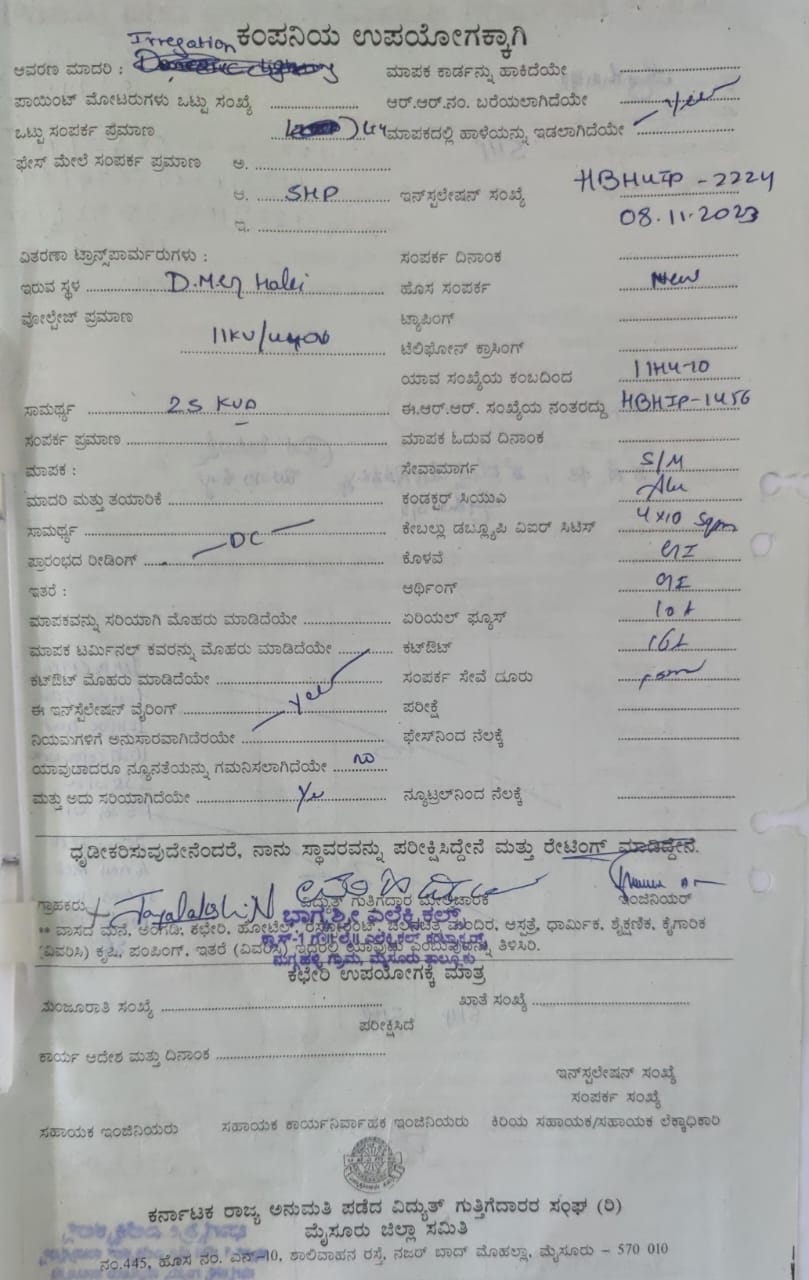 Irregation ಕಂಪನಿಯ ಉಪಯೋಗಕ್ಕಾಗಿ
ಆವರಣ ಮಾದರಿ : ಮಾಪಕ ಕಾರ್ಡನ್ನು ಹಾಕಿದೆಯೇ
ಪಾಯಿಂಟ್ ಮೋಟರುಗಳು ಒಟ್ಟು ಸಂಖ್ಯೆ ಆರ್.ಆರ್.ನಂ. ಬರೆಯಲಾಗಿದೆಯೇ
ಒಟ್ಟು ಸಂಪರ್ಕ ಪ್ರಮಾಣ ಮಾಪಕದಲ್ಲಿ ಹಾಳೆಯನ್ನು ಇಡಲಾಗಿದೆಯೇ Yes
ಫೇಸ್ ಮೇಲೆ ಸಂಪರ್ಕ ಪ್ರಮಾಣ ಅ.
ಆ. 5HP ಇನ್‌ಸ್ಟಲೇಷನ್ ಸಂಖ್ಯೆ HBHUIP-2224
ಇ. 08.11.2023
ವಿತರಣಾ ಟ್ರಾನ್ಸ್‌ಪಾರ್ಮರುಗಳು : ಸಂಪರ್ಕ ದಿನಾಂಕ
ಇರುವ ಸ್ಥಳ ಹೊಸ ಸಂಪರ್ಕ New
ವೋಲ್ಟೇಜ್ ಪ್ರಮಾಣ ಟ್ಯಾಪಿಂಗ್
ಟೆಲಿಫೋನ್ ಕ್ರಾಸಿಂಗ್
ಯಾವ ಸಂಖ್ಯೆಯ ಕಂಬದಿಂದ
ಸಾಮರ್ಥ್ಯ 25 KVA ಈ.ಆರ್.ಆರ್. ಸಂಖ್ಯೆಯ ನಂತರದ್ದು HBHIP-1456
ಸಂಪರ್ಕ ಪ್ರಮಾಣ ಮಾಪಕ ಓದುವ ದಿನಾಂಕ
ಮಾಪಕ : ಸೇವಾಮಾರ್ಗ S/M
ಮಾದರಿ ಮತ್ತು ತಯಾರಿಕೆ ಕಂಡಕ್ಟರ್ ಸಿಯುಎ Alu
ಸಾಮರ್ಥ್ಯ ಕೇಬಲ್ಲು ಡಬ್ಲ್ಯೂಪಿ ವಿಐರ್ ಸಿಟಿಸ್ 4x10 Sqm
ಪ್ರಾರಂಭದ ರೀಡಿಂಗ್ DC ಕೊಳವೆ GI
ಇತರೆ : ಆರ್ಥಿಂಗ್ GI
ಮಾಪಕವನ್ನು ಸರಿಯಾಗಿ ಮೊಹರು ಮಾಡಿದೆಯೇ ಏರಿಯಲ್ ಫ್ಯೂಸ್ 10A
ಮಾಪಕ ಟರ್ಮಿನಲ್ ಕವರನ್ನು ಮೊಹರು ಮಾಡಿದೆಯೇ ಕಟ್‌ಔಟ್ 16A
ಕಟ್‌ಔಟ್ ಮೊಹರು ಮಾಡಿದೆಯೇ ಸಂಪರ್ಕ ಸೇವೆ ದೂರು
ಈ ಇನ್‌ಸ್ಟೆಲೇಷನ್ ವೈರಿಂಗ್ Yes ಪರೀಕ್ಷೆ
ನಿಯಮಗಳಿಗೆ ಅನುಸಾರವಾಗಿದೆರಯೇ ಫೇಸ್‌ನಿಂದ ನೆಲಕ್ಕೆ
ಯಾವುದಾದರೂ ನ್ಯೂನತೆಯನ್ನು ಗಮನಿಸಲಾಗಿದೆಯೇ no
ಮತ್ತು ಅದು ಸರಿಯಾಗಿದೆಯೇ Yes ನ್ಯೂಟ್ರಲ್‌ನಿಂದ ನೆಲಕ್ಕೆ
ಧೃಡೀಕರಿಸುವುದೇನೆಂದರೆ, ನಾನು ಸ್ಥಾವರವನ್ನು ಪರೀಕ್ಷಿಸಿದ್ದೇನೆ ಮತ್ತು ರೇಟಿಂಗ್ ಮಾಡಿದ್ದೇನೆ.
ಗ್ರಾಹಕರು Jayalakshi N ವಿದ್ಯುತ್ ಗುತ್ತಿಗೆದಾರ ಮೇಲ್ವಿಚಾರಕ ಇಂಜಿನಿಯರ್
ಭಾಗ್ಯಶ್ರೀ ಎಲೆಕ್ಟ್ರಿಕಲ್
** ವಾಸದ ಮನೆ, ಅಂಗಡಿ, ಕಛೇರಿ, ಹೋಟೆಲ್, ರೆಸ್ಟೋರೆಂಟ್, ಚಲನಚಿತ್ರ ಮಂದಿರ, ಆಸ್ಪತ್ರೆ, ಧಾರ್ಮಿಕ, ಶೈಕ್ಷಣಿಕ, ಕೈಗಾರಿಕ
(ವಿವರಿಸಿ) ಕೃಷಿ, ಪಂಪಿಂಗ್, ಇತರೆ (ವಿವರಿಸಿ) ಇದರಲ್ಲಿ ಯಾವುದು ಎಂಬುವುದನ್ನು ತಿಳಿಸಿರಿ.
ಕಛೇರಿ ಉಪಯೋಗಕ್ಕೆ ಮಾತ್ರ
ಮಂಜೂರಾತಿ ಸಂಖ್ಯೆ ಖಾತೆ ಸಂಖ್ಯೆ
ಪರೀಕ್ಷಿಸಿದೆ
ಕಾರ್ಯ ಆದೇಶ ಮತ್ತು ದಿನಾಂಕ
ಇನ್‌ಸ್ಟಲೇಷನ್ ಸಂಖ್ಯೆ
ಸಂಪರ್ಕ ಸಂಖ್ಯೆ
ಸಹಾಯಕ ಇಂಜಿನಿಯರು ಸಹಾಯಕ ಕಾರ್ಯನಿರ್ವಾಹಕ ಇಂಜಿನಿಯರು ಕಿರಿಯ ಸಹಾಯಕ/ಸಹಾಯಕ ಲೆಕ್ಕಾಧಿಕಾರಿ
ಕರ್ನಾಟಕ ರಾಜ್ಯ ಅನುಮತಿ ಪಡೆದ ವಿದ್ಯುತ್ ಗುತ್ತಿಗೆದಾರರ ಸಂಘ (ರಿ)
ಮೈಸೂರು ಜಿಲ್ಲಾ ಸಮಿತಿ
ನಂ.445, ಹೊಸ ನಂ. ಎನ್-10, ಶಾಲಿವಾಹನ ರಸ್ತೆ, ನಜರ್ ಬಾದ್ ಮೊಹಲ್ಲಾ, ಮೈಸೂರು - 570 010